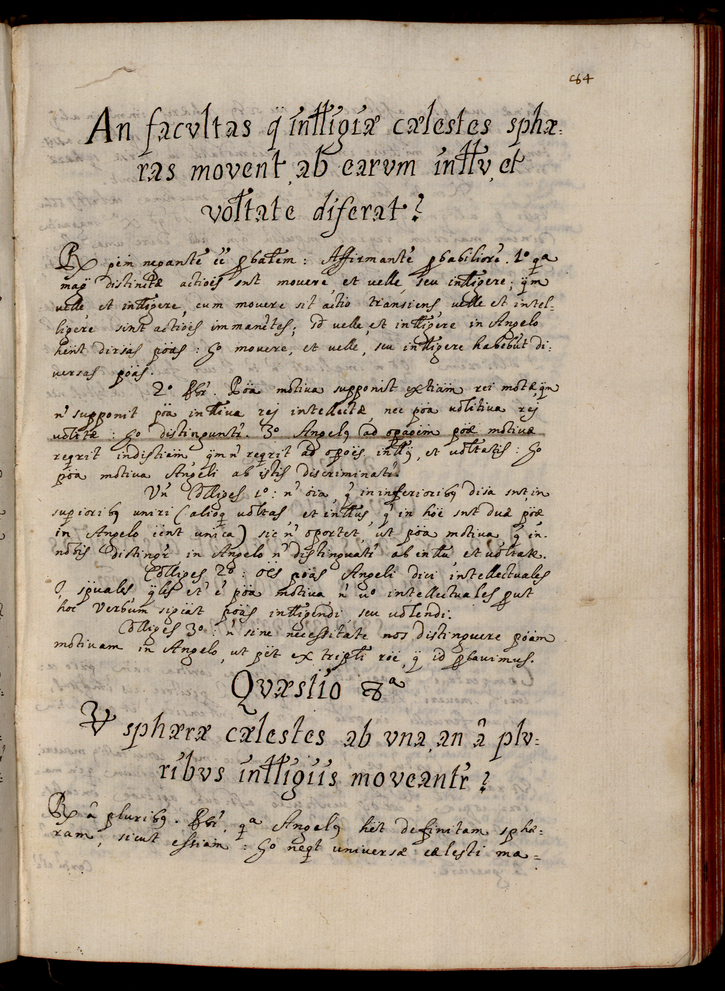 64
An facultas q̃ intt̃igiæ cælestes sphæ-
ras movent, ab earum intt̃u, et
volt̃ate diferat?
R pem̃ negantẽ eẽ p̃bat̃em: Affirmantẽ p̃babiliorẽ. 1º q̃a
mag̃ distinctæ actiões snt̃ movere, et velle, seu intt̃igere; qm̃
velle et intt̃igere, cum movere sit actio transiens, velle et intel-
ligere sint actiões immanẽtes; sed velle, et intt̃igere in Angelo
hẽnt diṽsas põas: Go movere, et velle, seu intt̃igere habebũt di-
versas põas.
2º Pbr̃. Põa motiva supponit extĩam rei motæ, qm̃
ñ supponit põa intt̃iva rej intellectæ, nec põa volitiva rej
volitæ: Go distinguntr̃. 3º Angelq ad opãõem põæ motivæ
reqrit indistĩam qm̃ ñ reqrit ad opões intt̃ũ, et volt̃atis: Go
põa motiva Angeli ab istis discriminatr̃.
Vñ Coll̃iges 1º: ñ oĩa, q̃ in inferioribq diṽsa snt̃, in
sup̃ioribq uniri (alioq̃ volt̃as et intt̃us, q̃ in hõe snt̃ duæ põæ
in Angelo eẽnt unica) sic ñ oportet, ut põa motiva q̃ in
nobis distingr̃ in Angelo ñ distinguatr̃ ab intt̃u et volt̃ate.
Coll̃iges 2º: oẽs põas Angeli dici intellectuales
s̃puales q̃les etĩ ẽ põa motiva ñ vº intellectuales p̃ut
hoc verbum sig̃at põas intt̃igendi seu volendi.
Coll̃iges 3º: ñ sine necessitate nos distinguere põam
motivam in Angelo, ut p̃et ex tripl̃i rõe, q̃ id p̃bavimus.
Quæstio 8ª
V̄ sphæræ cælestes ab una, an â plu-
ribus intt̃igiis moveantr̃?
R â pluribq. Pbr̃. q̃a Angelq hẽt definitam sphæ-
ram, sicut essĩam: Go neq̃t universæ cælesti ma-